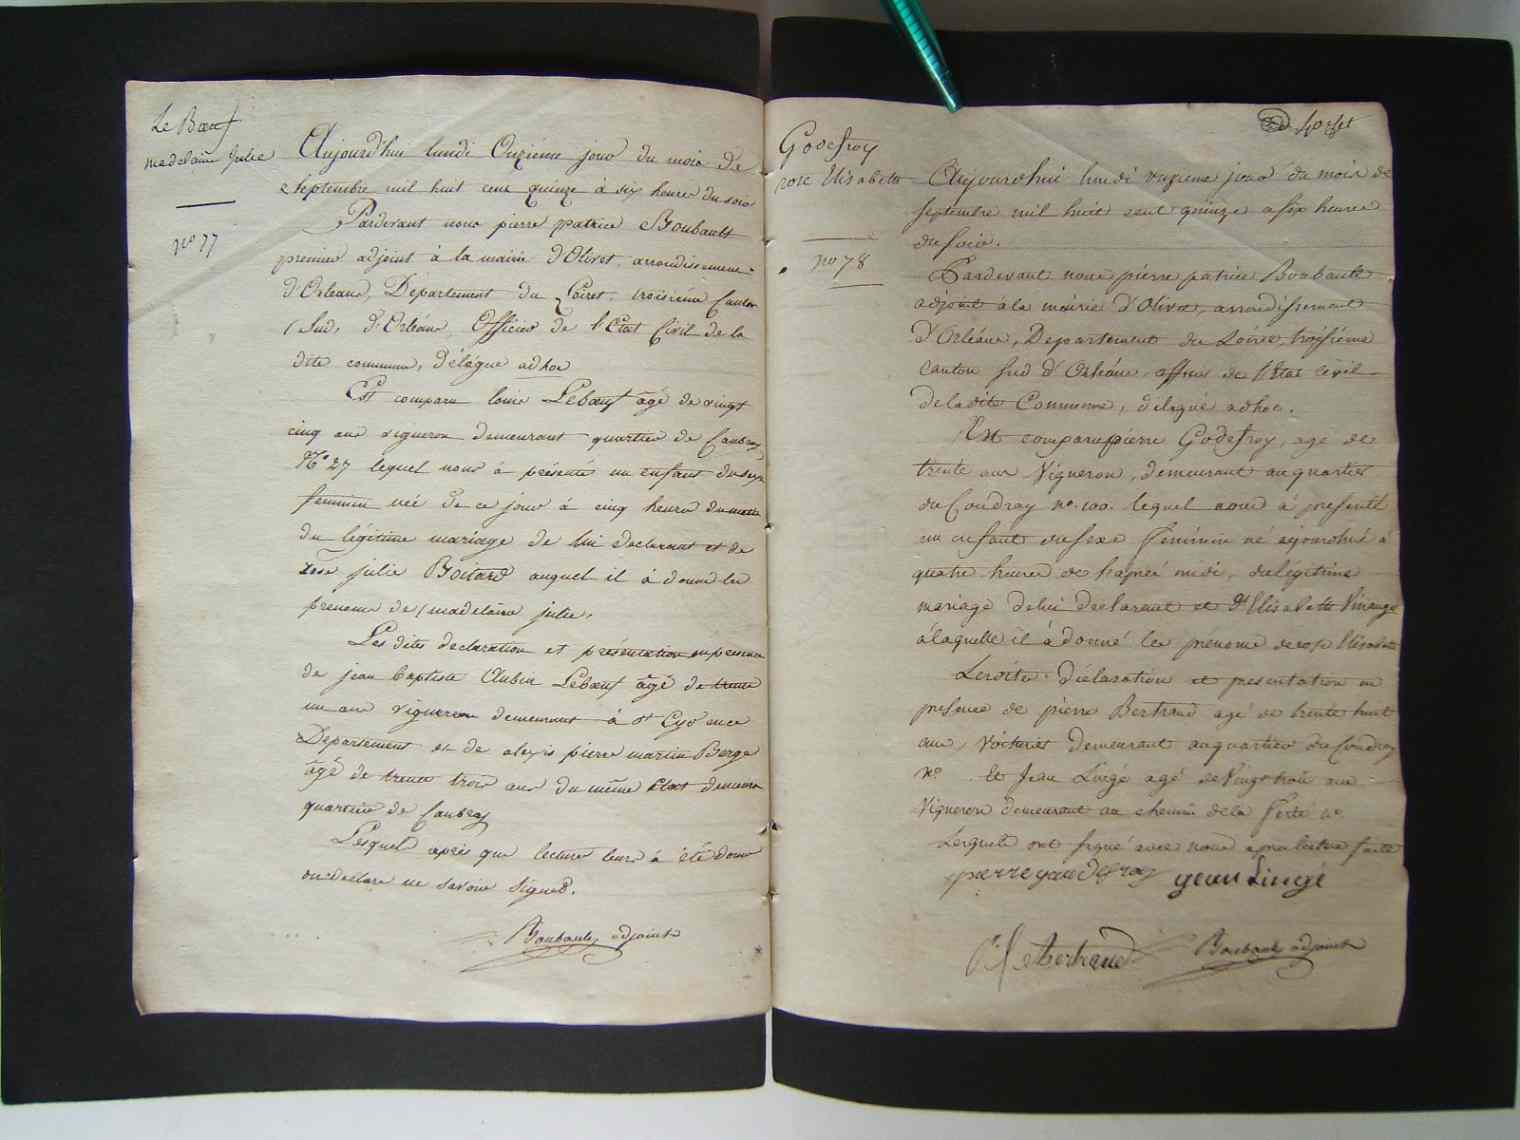 Le Bœuf
madelaine Julie
nº 77
Aujourd'hui lundi Onzieme jour du mois de
Septembre mil huit cent quinze à six heures du soir
Pardevant nous pierre patrice Boubault
premier adjoint à la mairie d'Olivet, arrondissement
d'Orleans, Département du Loiret, troisieme Canton
Sud, d'Orléans, Officier de l'Etat Civil de la
dite commune, délégué adhoc
Est comparu louis Lebœuf âgé de vingt
cinq ans vigneron demeurant quartier de Caubray
Nº 27 lequel nous à présenté un enfant du sexe
feminin née de ce jour à cinq heures du matin
du légitime mariage de lui declarant et de
julie Boitard auquel il à donné les
prenoms de madelaine julie,
Les dites declaration et présentation en presence
de jean baptiste Aubin Lebœuf âgé de trente
un ans vigneron demeurant à St Cyr en ce
Departement et de alexis pierre martin Berge
âgé de trente trois ans du même état demeurant
quartier de Caubray
Lesquels après que lecture leur à été donné
on declaré ne savoir signer.
Boubault adjoint
Godefroy
rose Elisabeth
nº 78
Aujourdhui lundi onzieme jour du mois de
septembre mil huit cent quinze a six heures
du soir.
Pardevant nous pierre patrice Boubault
adjoint à la mairie d'Olivet, arrondissement
d'Orléans, Departement du Loiret, troisième
canton sud d'Orléans, officier de l'Etat civil
de ladite Commune, délégué adhoc.
Est comparu pierre Godefroy, agé de
trente ans Vigneron, demeurant au quartier
du Coudray nº 100. lequel nous à presenté
un enfant du sexe féminin né aujourdhui à
quatre heures de l'après midi, du légitime
mariage de lui declarant et d'Elisabeth
à laquelle il à donné les prénoms de rose Elisabeth
Lesdites déclaration et presentation en
présence de pierre Bertrand agé de trente huit
ans, Voiturier demeurant au quartier du Coudray
Nº et Jean Lingé agé de Vingt trois ans
Vigneron demeurant au chemin de la ferté nº
Lesquels ont signé avec nous apres lecture faite
pierre gaudefroy jean Lingé
Bertrand Boubault adjoint